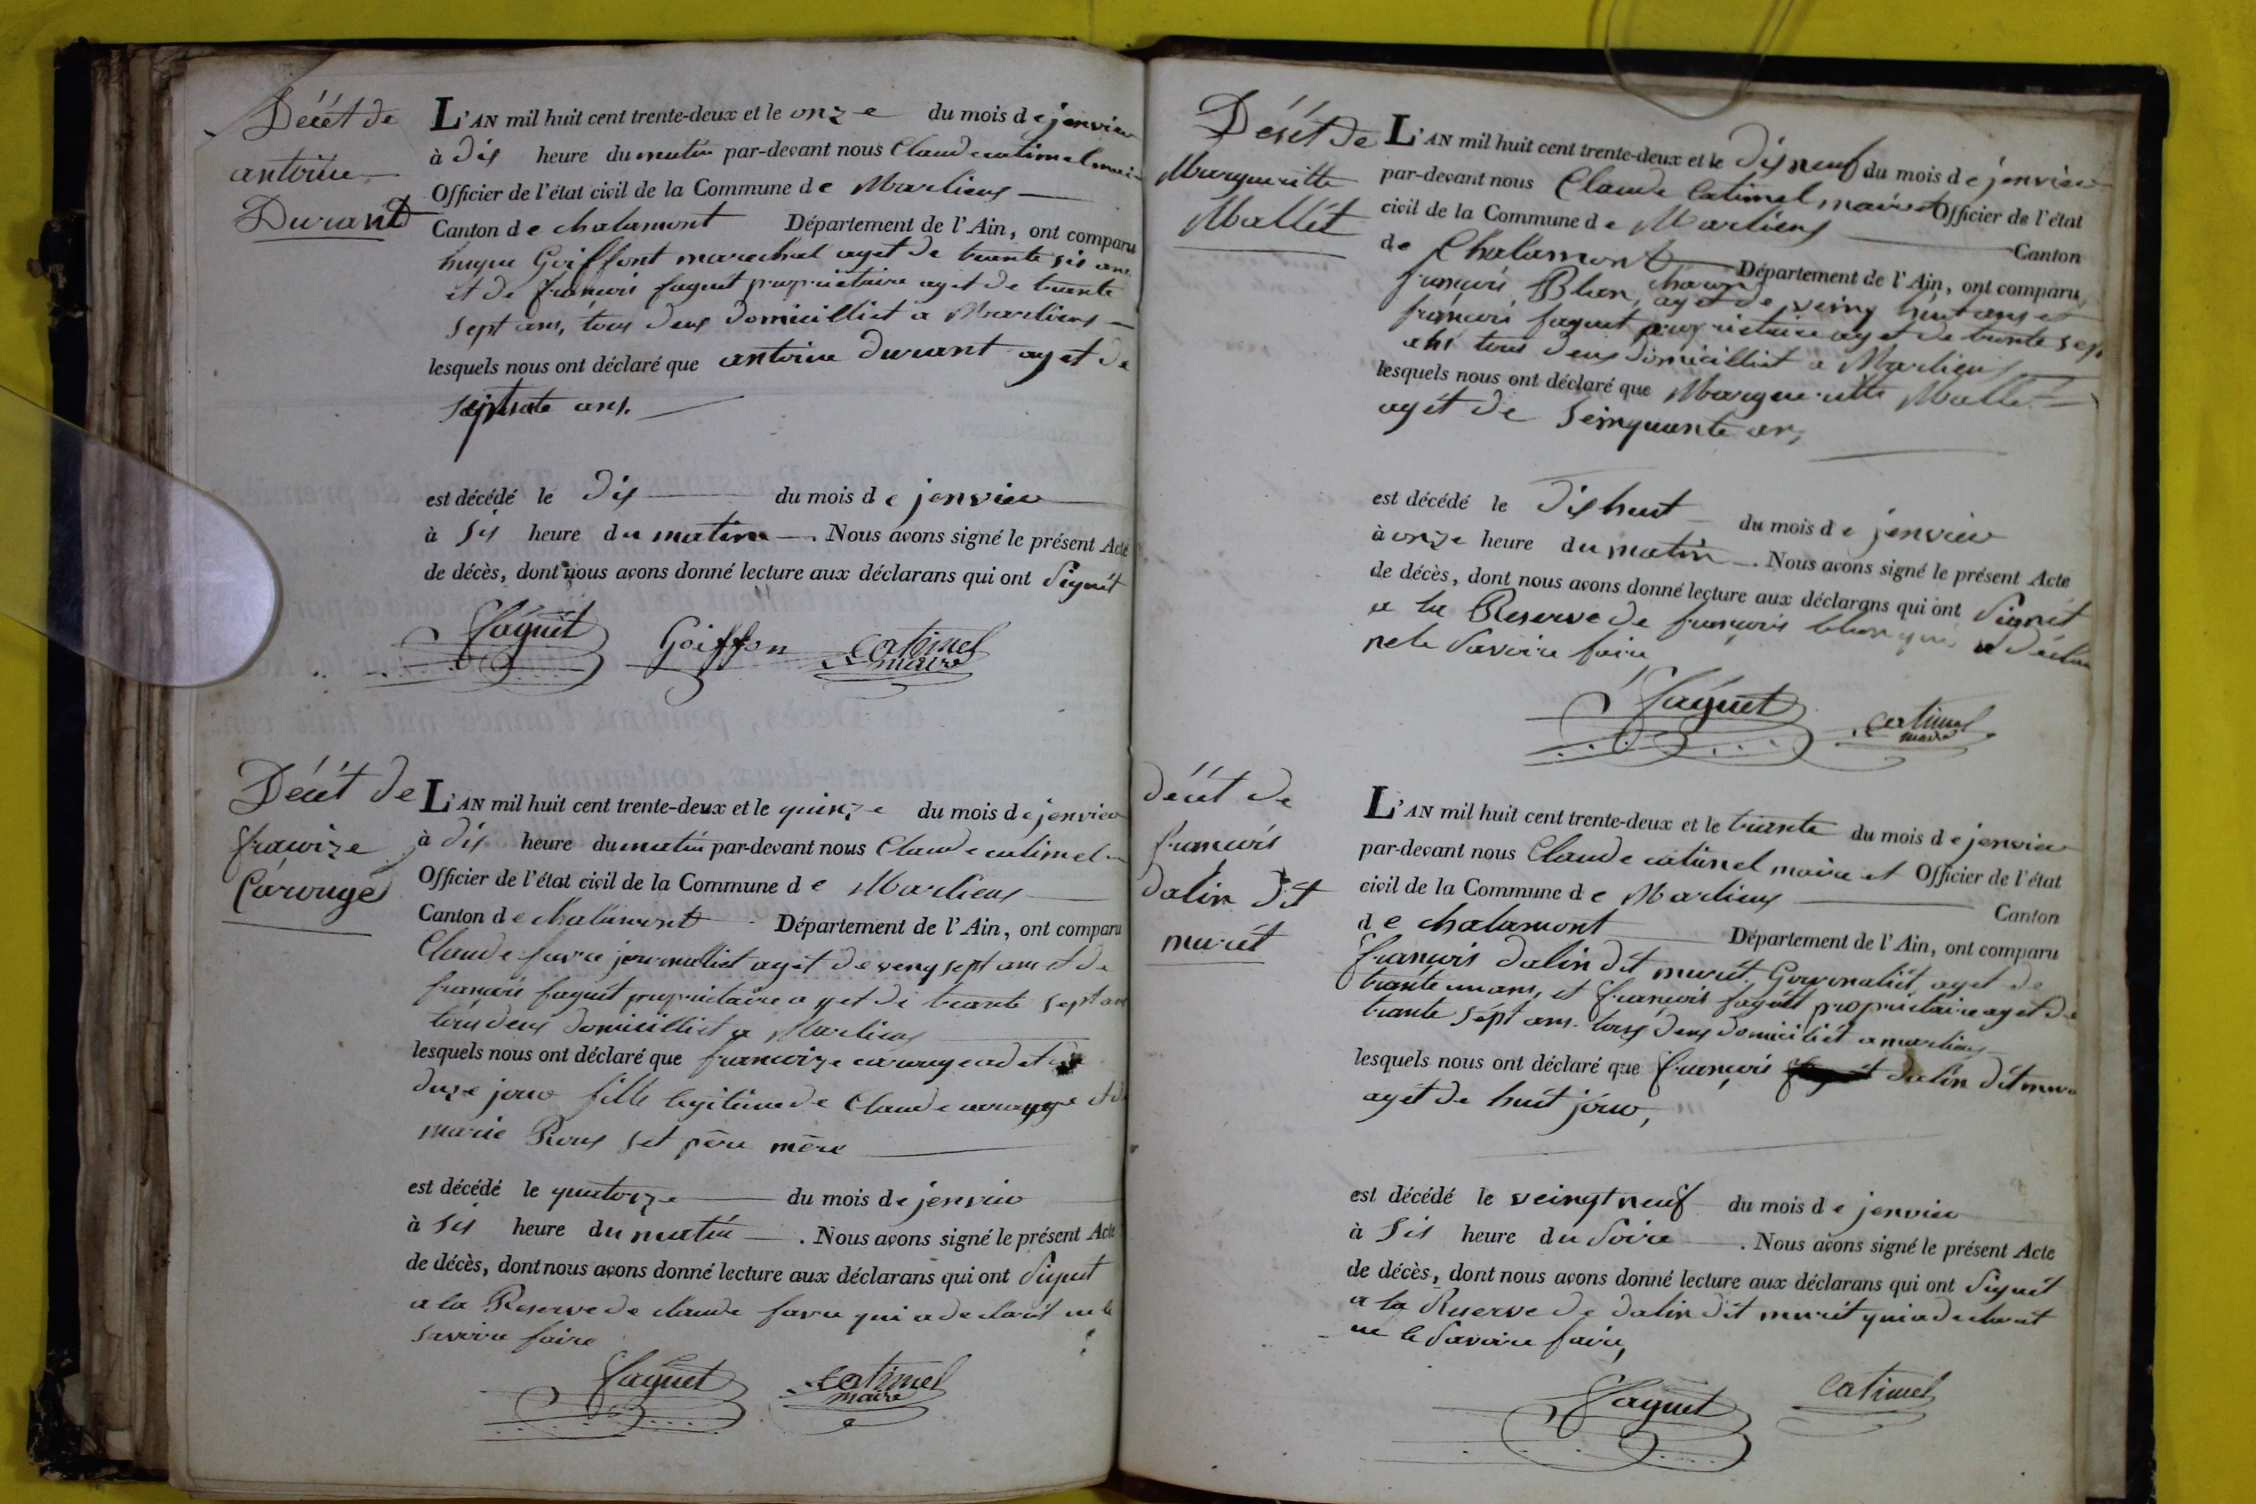 Décét de
antoine
Durant
L'AN mil huit cent trente-deux et le onze du mois de jenvier
à dis heure du matin par-devant nous Claude catimel mai
Officier de l'état civil de la Commune de Marlieux
Canton de chalamont Département de l'Ain, ont comparu
hugue Goiffont marechal aget de trante sis ans
et de françois faguet propriétaire aget de trante
sept ans, tous deux domicilliet a Marlieux
lesquels nous ont déclaré que antoine durant aget de
ans.
est décédé le dix du mois de jenvier
à sis heure du matin. Nous avons signé le présent Acte
de décès, dont nous avons donné lecture aux déclarans qui ont signét
faguet Goiffon catimel
maire
Décét de
franvize
Carougé
L'AN mil huit cent trente-deux et le quinze du mois de jenvier
à dix heure du matin par-devant nous Claude catimel
Officier de l'état civil de la Commune de Marlieux
Canton de chalamont Département de l'Ain, ont comparu
Claude favre journalliet aget de veng sept ans et de
françois faguét propriétaire aget de trante sept ans
tous deux domicilliet a Marlieux
lesquels nous ont déclaré que francoize carouge
duze jour fille legitime de Claude carouge et de
marie Roux set père mère
est décédé le quatorze du mois de jenvier
à sis heure du matin. Nous avons signé le présent Acte
de décès, dont nous avons donné lecture aux déclarans qui ont signét
a la Reserve de claude favre qui a declarét ne le
savoire faire
faguet catimel
maire
Desét de
Margueritte
Mallét
L'AN mil huit cent trente-deux et le disneuf du mois de jenvier
par-devant nous Claude Catimel maire et Officier de l'état
civil de la Commune de Marlieux Canton
de Chalamont Département de l'Ain, ont comparu
françois Blan, aget de veing huit ans et
françois faguet propriétaire aget de trante sept
ans tous deux domicilliet a Marlieux
lesquels nous ont déclaré que Margueritte Mallet
agét de seinquante an,
est décédé le dishuit du mois de jenvier
à onze heure du matin. Nous avons signé le présent Acte
de décès, dont nous avons donné lecture aux déclarans qui ont signét
a la Reserve de françois blan qui a déclaré
ne le savoire faire
faguet catimel
maire
décét de
francois
dalin dit
murét
L'AN mil huit cent trente-deux et le trante du mois de jenvier
par-devant nous Claude catimel maire et Officier de l'état
civil de la Commune de Marlieux Canton
de chalamont Département de l'Ain, ont comparu
françois dalin dit murét, aget de
trante un ans, et françois faguét propriétaire aget de
trante sept ans. tous deux domicilét a marlieux
lesquels nous ont déclaré que françois dalin dit mure
agét de huit jour,
est décédé le veingt neuf du mois de jenvier
à sis heure du soire. Nous avons signé le présent Acte
de décès, dont nous avons donné lecture aux déclarans qui ont signét
a la Reserve de dalin dit murét qui a declarét
ne le savoire faire,
faguet catimel